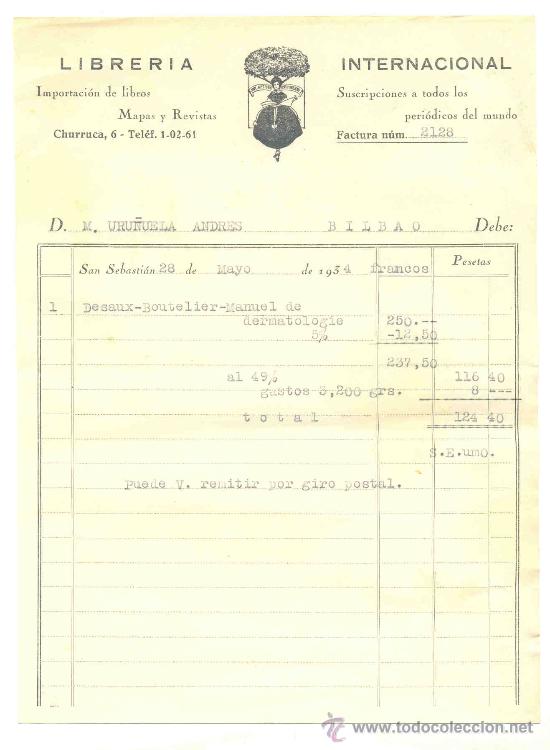 LIBRERIA INTERNACIONAL
Importación de libros
Mapas y Revistas
Churruca, 6 - Teléf. 1-02-61
Suscripciones a todos los
periódicos del mundo
Factura núm. 2128
D. M. URUÑUELA ANDRES BILBAO Debe:
San Sebastián 28 de Mayo de 1934 francos Pesetas
1 Desaux-Boutelier-Manuel de
dermatologie 250.--
5% -12,50
237,50
al 49% 116 40
gastos 3,200 grs. 8 ---
total 124 40
S.E.umo.
Puede V. remitir por giro postal.
todocoleccion
www.todocoleccion.net